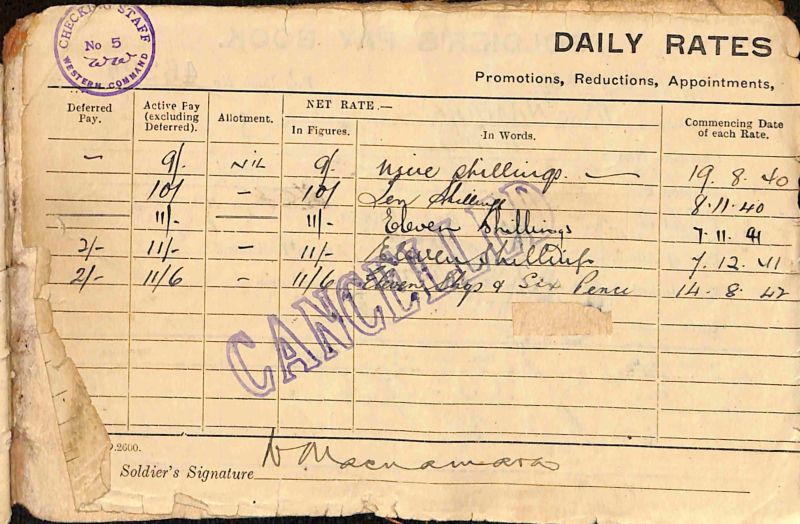 CHECKING STAFF
No 5
WW
WESTERN COMMAND
DAILY RATES
Promotions, Reductions, Appointments,
Deferred Pay.
Active Pay (excluding Deferred).
Allotment.
NET RATE.—
In Figures.
In Words.
Commencing Date of each Rate.
— 9/- NIL 9/- Nine shillings. — 19. 8. 40
10/ — 10/ Ten Shillings 8.11.40
11/- 11/- Eleven Shillings 7.11.41
2/- 11/- - 11/- Eleven Shillings 7.12.41
2/- 11/6 - 11/6 Eleven Shgs & Six Pence 14.8.42
CANCELLED
.2600.
Soldier's Signature N Macnamara